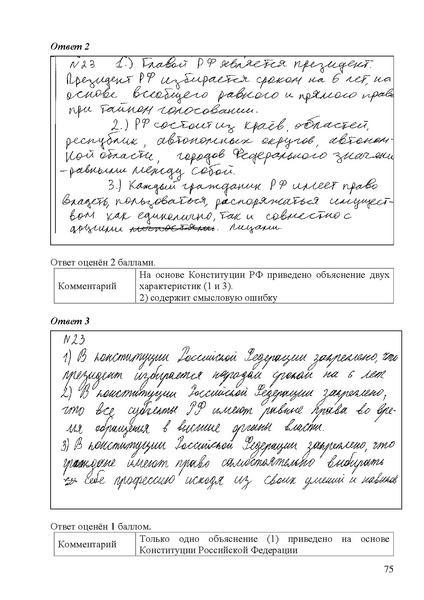 Ответ 2
N23 1.) Главой РФ является президент.
Президент РФ избирается сроком на 6 лет, на
основе всеобщего равного и прямого права
при тайном голосовании.
2.) РФ состоит из краёв, областей,
республик, автономных округов, автоном-
ной области, городов Федерального значения
- равными между собой.
3.) Каждый гражданин РФ имеет право
владеть, пользоваться, распоряжаться имущест-
вом как единолично, так и совместно с
другими лицами
Ответ оценён 2 баллами.
Комментарий
На основе Конституции РФ приведено объяснение двух
характеристик (1 и 3).
2) содержит смысловую ошибку
Ответ 3
N23
1) В конституции Российской Федерации закреплено, что
президент избирается народом сроком на 6 лет
2) В конституции Российской Федерации закреплено,
что все субъекты РФ имеют равные права во вре-
мя обращения в высшие органы власти.
3) В конституции Российской Федерации закреплено, что
граждане имеют право самостоятельно выбирать
себе профессию исходя из своих умений и навыков
Ответ оценён 1 баллом.
Комментарий
Только одно объяснение (1) приведено на основе
Конституции Российской Федерации
75